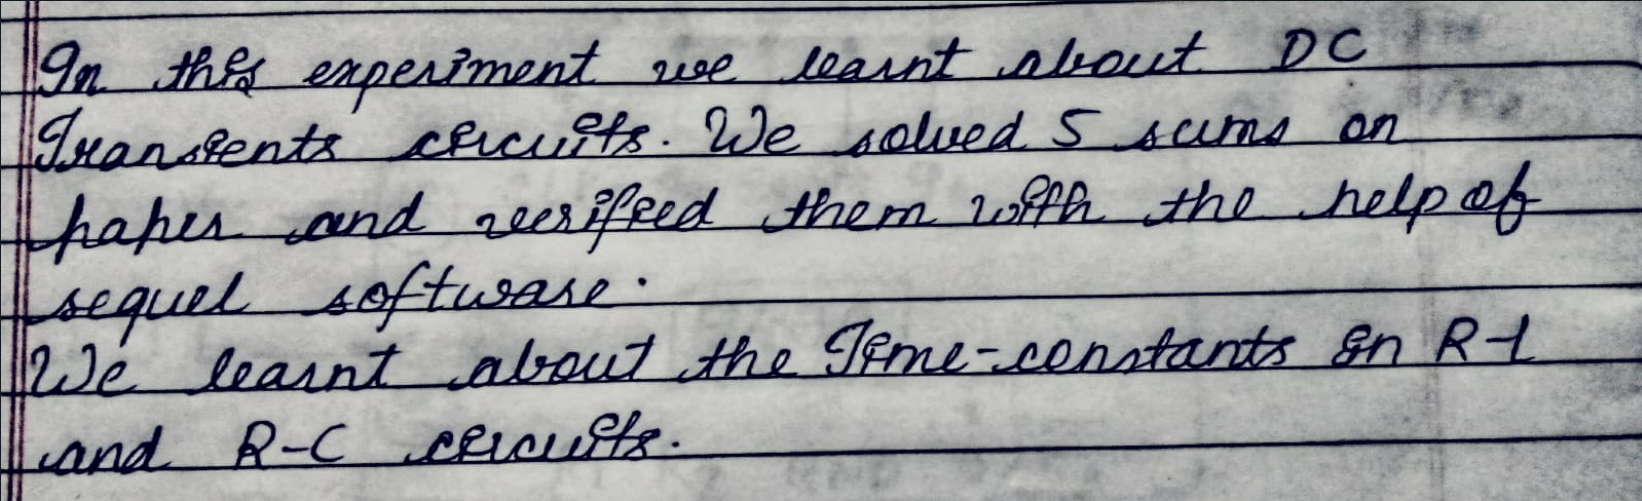 In this experiment we learnt about DC
Transients circuits. We solved 5 sums on
paper and verified them with the help of
sequel software.
We learnt about the Time-constants in R-L
and R-C circuits.